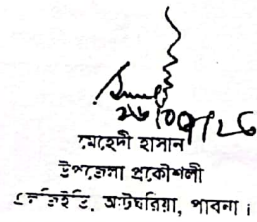 ২৬/০৭/২৬
মেহেদী হাসান
উপজেলা প্রকৌশলী
এলজিইডি, আটঘরিয়া, পাবনা।